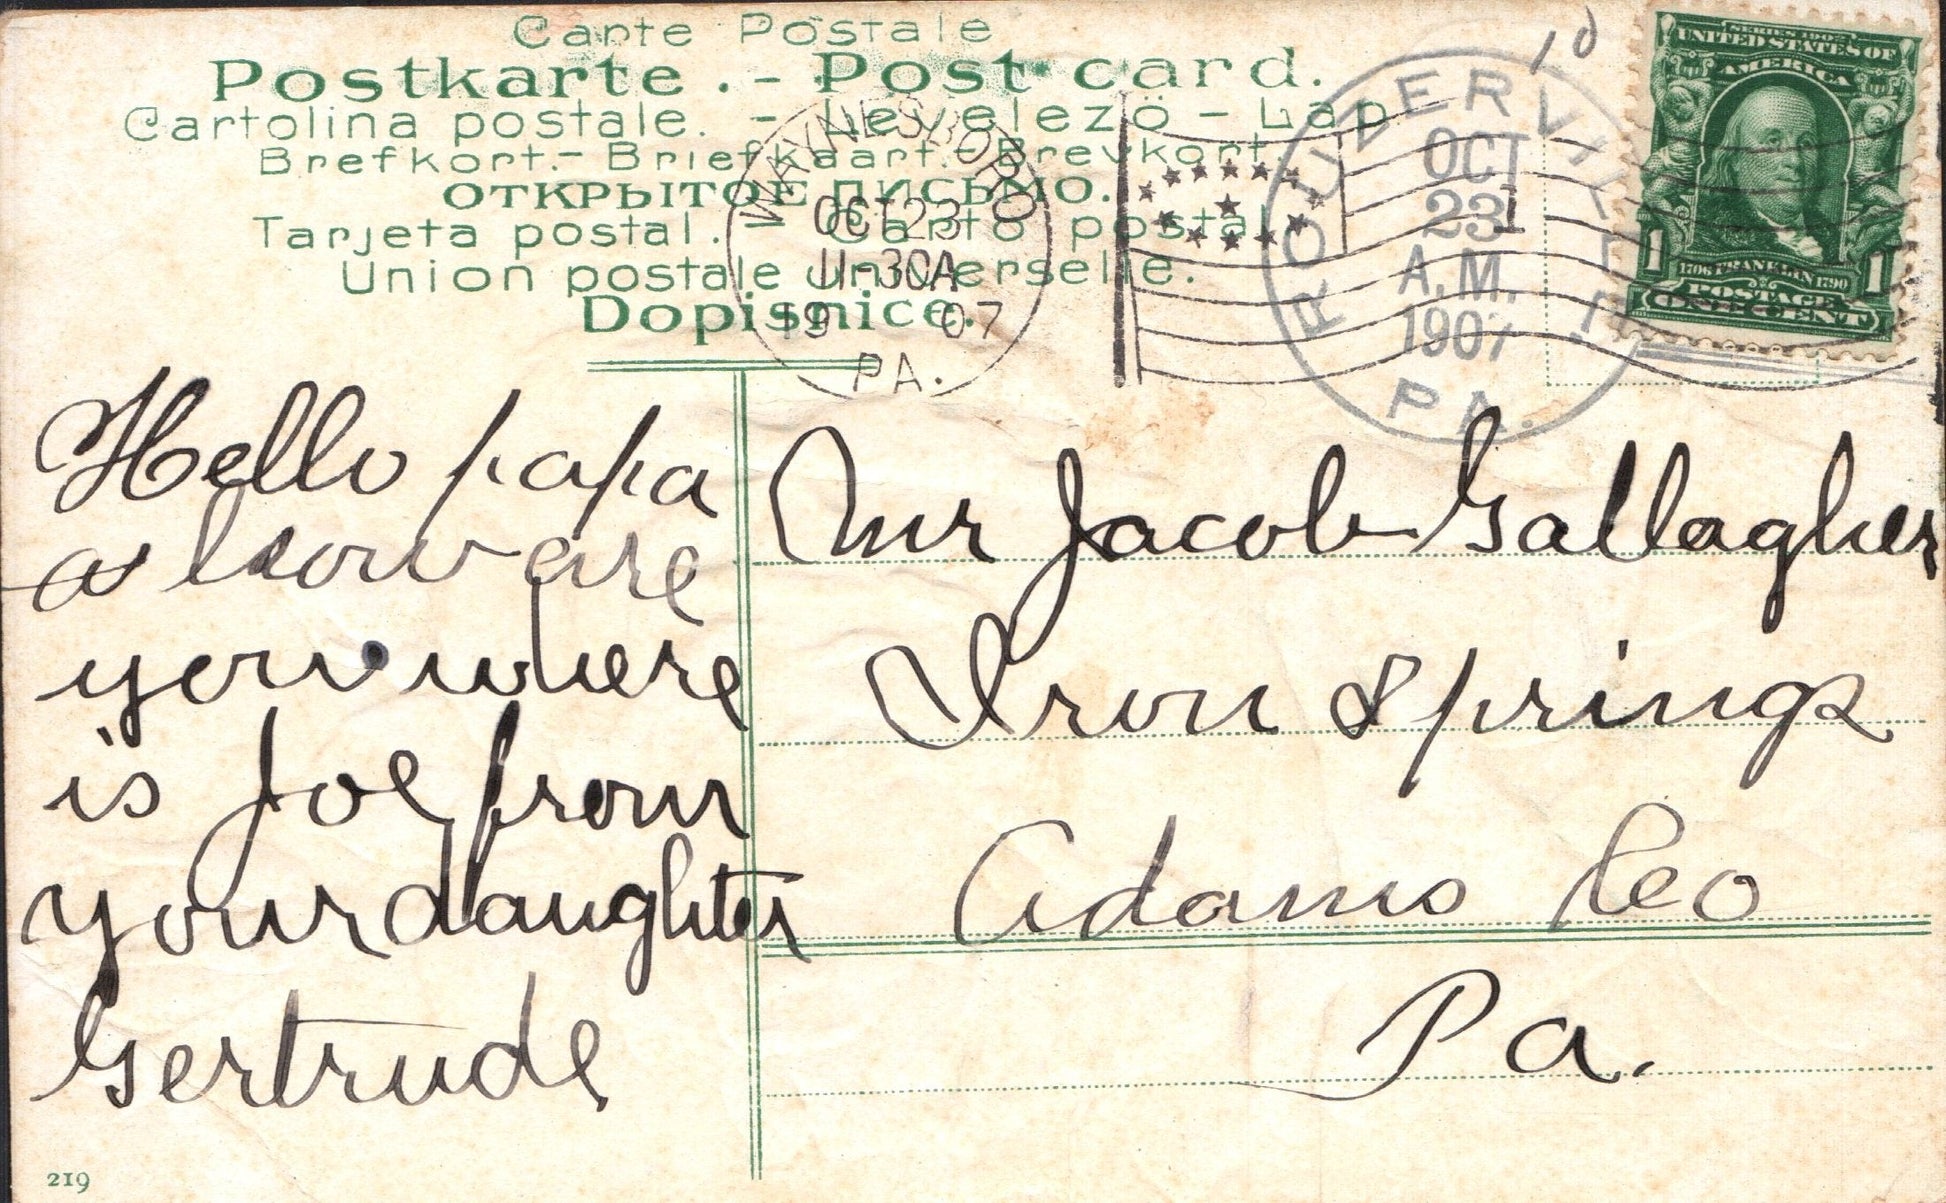 Carte Postale
Postkarte. - Post card.
Cartolina postale. - Levelezö - Lap
Brefkort. - Briefkaart. - Brevkort
ОТКРЫТОЕ ПИСЬМО.
Tarjeta postal. - Carto postal
Union postale universelle.
Dopisnice.
WAYNESBORO
OCT 23
11-30A
1907
PA.
ROUZERVILLE
OCT
23
A.M.
1907
PA.
1d
SERIES 1902
UNITED STATES OF
AMERICA
1706 FRANKLIN 1790
1 POSTAGE 1
ONE CENT
Hello papa
how are
you where
is Joe from
your daughter
Gertrude
Mr Jacob Gallagher
Iron Springs
Adams Co
Pa.
219